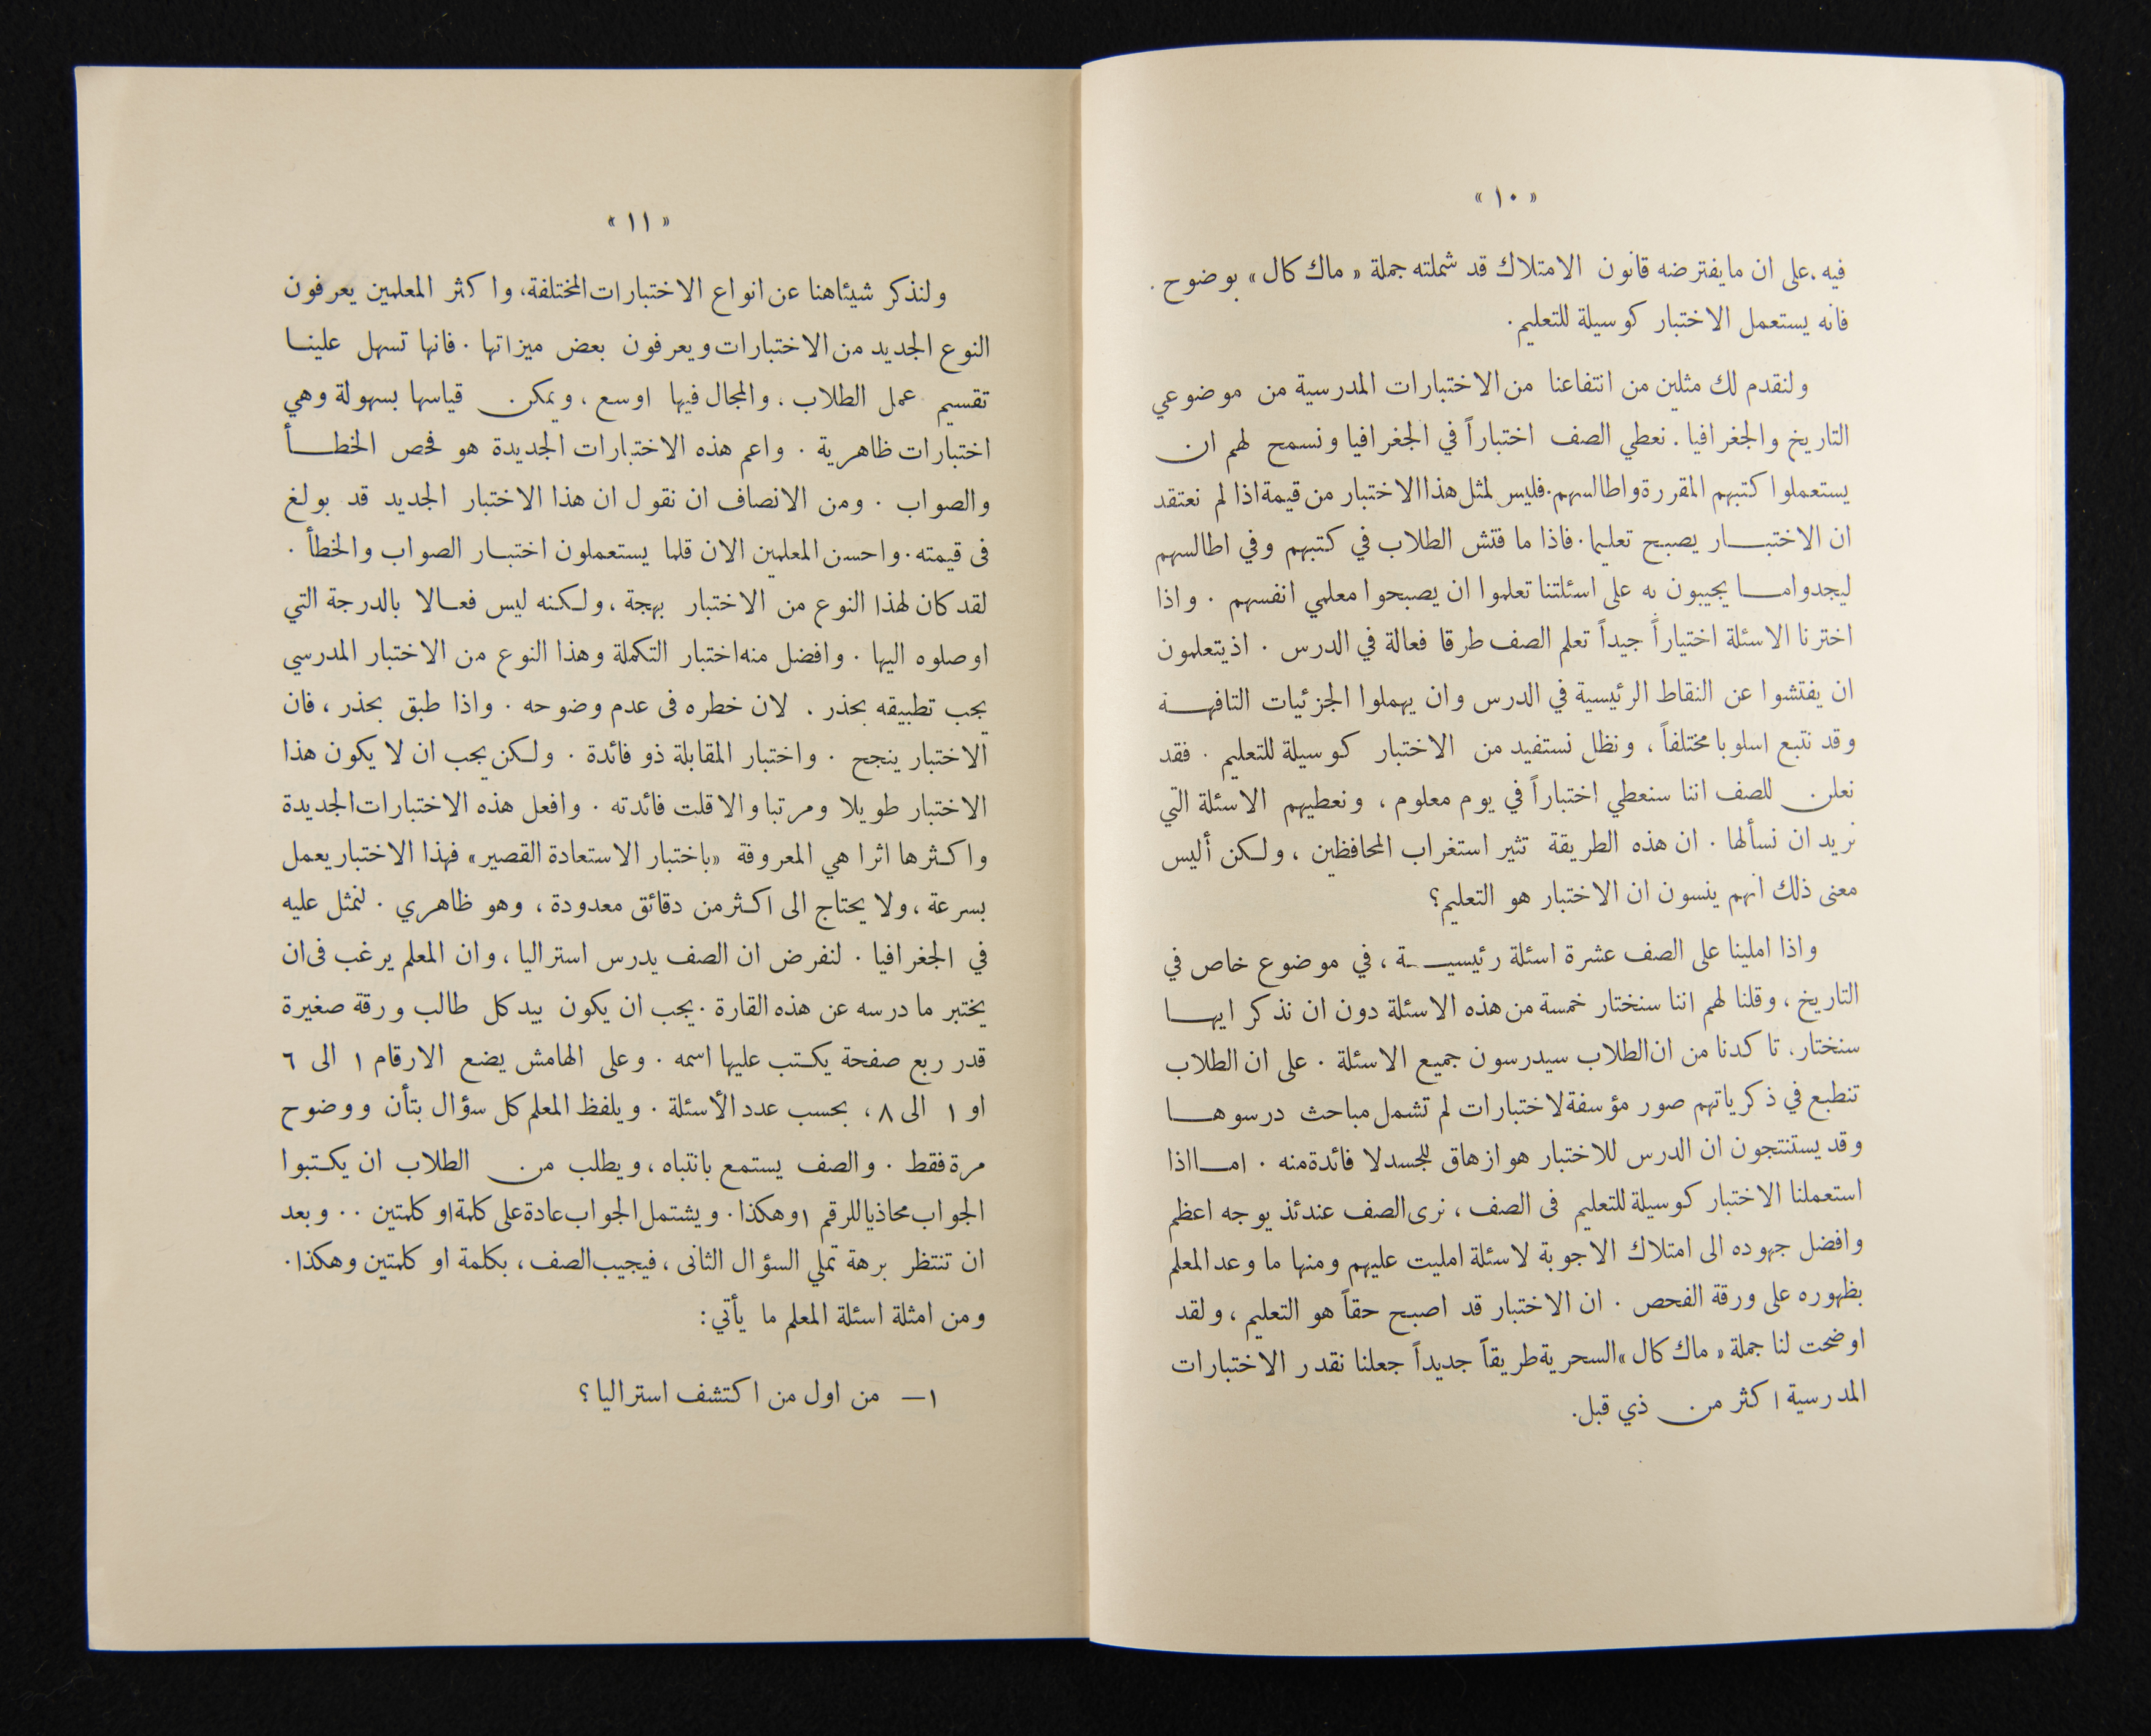 « ١٠ »
فيه ، على ان ما يفترضه قانون الامتلاك قد شملته جملة « ماك كال » بوضوح .
فانه يستعمل الاختبار كوسيلة للتعليم .
ولنقدم لك مثلين من انتفاعنا من الاختبارات المدرسية من موضوعي
التاريخ والجغرافيا . نعطي الصف اختباراً في الجغرافيا ونسمح لهم ان
يستعملوا كتبهم المقررة واطالسهم . فليس لمثل هذا الاختبار من قيمة اذا لم نعتقد
ان الاختبار يصبح تعليما . فاذا ما فتش الطلاب في كتبهم وفي اطالسهم
ليجدوا ما يجيبون به على اسئلتنا تعلموا ان يصبحوا معلمي انفسهم . واذا
اخترنا الاسئلة اختياراً جيداً تعلم الصف طرقا فعالة في الدرس . اذ يتعلمون
ان يفتشوا عن النقاط الرئيسية في الدرس وان يهملوا الجزئيات التافهة
وقد نتبع اسلوبا مختلفاً ، ونظل نستفيد من الاختبار كوسيلة للتعليم . فقد
نعلن للصف اننا سنعطي اختباراً في يوم معلوم ، ونعطيهم الاسئلة التي
نريد ان نسألها . ان هذه الطريقة تثير استغراب المحافظين ، ولكن أليس
معنى ذلك انهم ينسون ان الاختبار هو التعليم ؟
واذا املينا على الصف عشرة اسئلة رئيسية ، في موضوع خاص في
التاريخ ، وقلنا لهم اننا سنختار خمسة من هذه الاسئلة دون ان نذكر ايها
سنختار ، تاكدنا من ان الطلاب سيدرسون جميع الاسئلة . على ان الطلاب
تنطبع في ذكرياتهم صور مؤسفة لاختبارات لم تشمل مباحث درسوها
وقد يستنتجون ان الدرس للاختبار هو ازهاق للجسد لا فائدة منه . اما اذا
استعملنا الاختبار كوسيلة للتعليم فى الصف ، نرى الصف عندئذ يوجه اعظم
وافضل جهوده الى امتلاك الاجوبة لاسئلة امليت عليهم ومنها ما وعد المعلم
بظهوره على ورقة الفحص . ان الاختبار قد اصبح حقاً هو التعليم ، ولقد
اوضحت لنا جملة « ماك كال » السحرية طريقاً جديداً جعلنا نقدر الاختبارات
المدرسية اكثر من ذي قبل .
« ١١ »
ولنذكر شيئا هنا عن انواع الاختبارات المختلفة ، واكثر المعلمين يعرفون
النوع الجديد من الاختبارات ويعرفون بعض ميزاتها . فانها تسهل علينا
تقسيم عمل الطلاب . والمجال فيها اوسع ، ويمكن قياسها بسهولة وهي
اختبارات ظاهرية . واعم هذه الاختبارات الجديدة هو فحص الخطأ
والصواب . ومن الانصاف ان نقول ان هذا الاختبار الجديد قد بولغ
فى قيمته . واحسن المعلمين الان قلما يستعملون اختبار الصواب والخطأ .
لقد كان لهذا النوع من الاختبار بهجة ، ولكنه ليس فعالا بالدرجة التي
اوصلوه اليها . وافضل منه اختبار التكملة وهذا النوع من الاختبار المدرسي
يجب تطبيقه بحذر . لان خطره فى عدم وضوحه . واذا طبق بحذر ، فان
الاختبار ينجح . واختبار المقابلة ذو فائدة . ولكن يجب ان لا يكون هذا
الاختبار طويلا ومرتبا والا قلت فائدته . وافعل هذه الاختبارات الجديدة
واكثرها اثرا هي المعروفة « باختبار الاستعادة القصير » فهذا الاختبار يعمل
بسرعة ، ولا يحتاج الى اكثر من دقائق معدودة ، وهو ظاهري . لنمثل عليه
في الجغرافيا . لنفرض ان الصف يدرس استراليا ، وان المعلم يرغب فى ان
يختبر ما درسه عن هذه القارة . يجب ان يكون بيد كل طالب ورقة صغيرة
قدر ربع صفحة يكتب عليها اسمه . وعلى الهامش يضع الارقام ١ الى ٦
او ١ الى ٨ ، بحسب عدد الأسئلة . ويلفظ المعلم كل سؤال بتأن ووضوح
مرة فقط . والصف يستمع بانتباه ، ويطلب من الطلاب ان يكتبوا
الجواب محاذيا للرقم ١ وهكذا . ويشتمل الجواب عادة على كلمة او كلمتين . . وبعد
ان تنتظر برهة تملي السؤال الثانى ، فيجيب الصف ، بكلمة او كلمتين وهكذا .
ومن امثلة اسئلة المعلم ما يأتي :
١ — من اول من اكتشف استراليا ؟